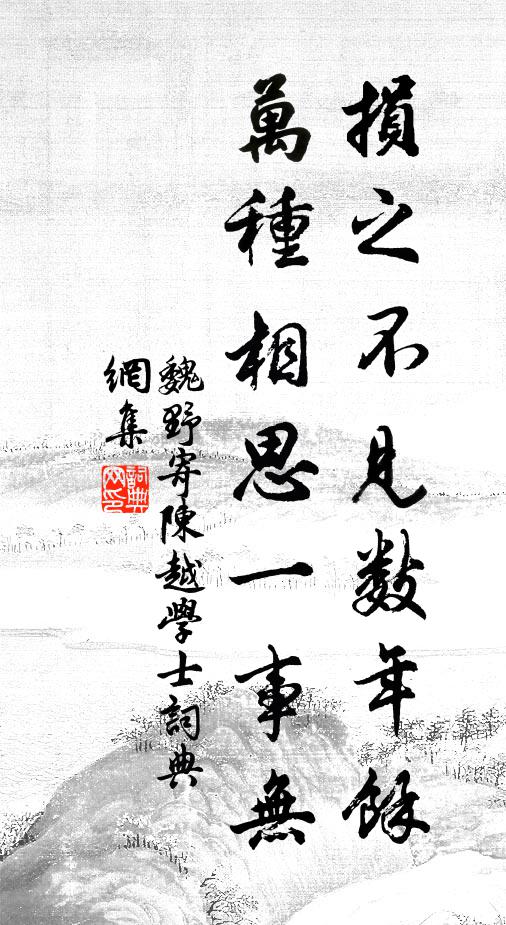 損之不見数年餘
萬種相思一事無
魏野寄陳越學士詞典
網集
詞典網印